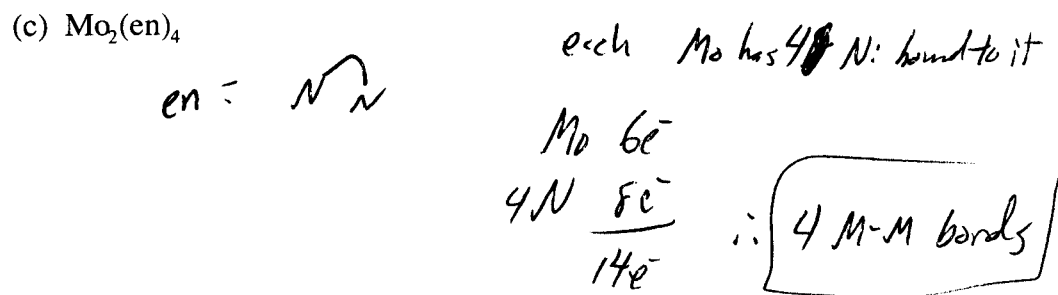 (c) Mo₂(en)₄
each Mo has 4 N: bound to it
en = N N
Mo 6e⁻
4N 8e⁻
14e⁻
∴ 4 M-M bonds